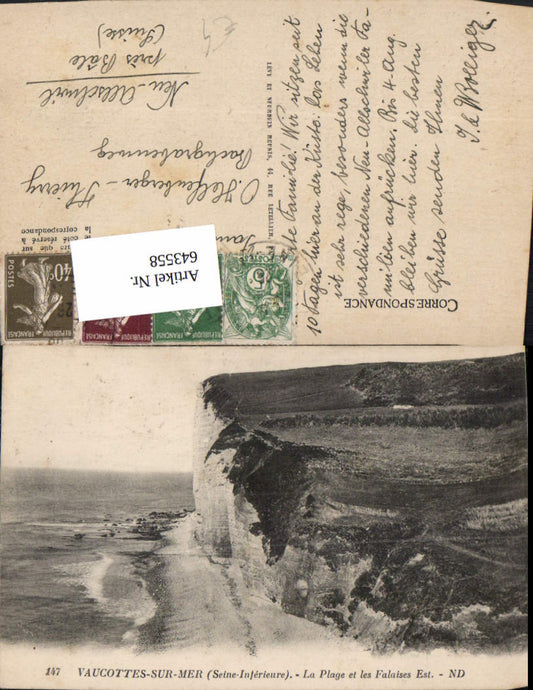 CORRESPONDANCE
liebe Familie! Wir sitzen seit
10 Tagen hier an der Küste. Das Leben
ist sehr rege, besonders wenn die
verschiedenen Neu-Allschwiler Fa-
milien aufrücken. Bis 4. Aug.
bleiben wir hier. Die besten
Grüsse senden Ihnen
J. de Bolliger.
LEVY ET NEURDEIN REUNIS, 44, RUE LETELLIER,
la correspondance
le côté réservé à
que sur
O. Helfenberger - Thierry
Bachgrabenweg
Neu-Allschwil
près Bâle
(Suisse)
Artikel Nr.
643558
POSTES
40c
REPUBLIQUE FRANÇAISE
REPUBLIQUE FRANÇAISE
REPUBLIQUE FRANÇAISE
5c
REPUBLIQUE FRANÇAISE
147 VAUCOTTES-SUR-MER (Seine-Inférieure). - La Plage et les Falaises Est. - ND